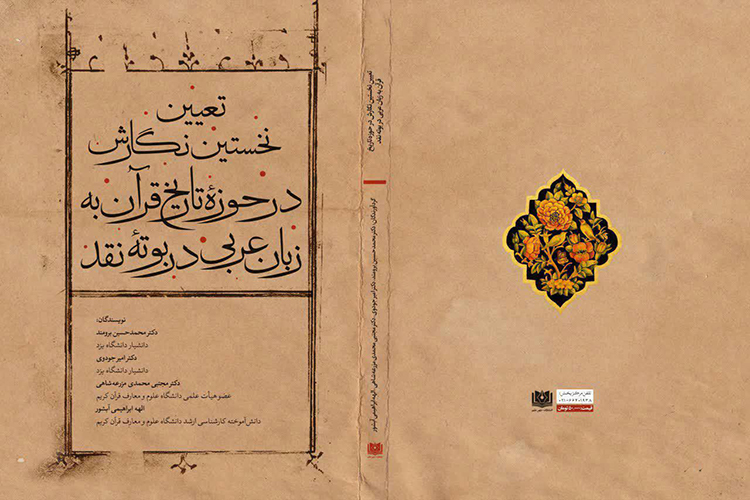 تعیین
نخستین نگارش
در حوزهٔ تاریخ قرآن به
زبان عربی در بوتهٔ نقد
نویسندگان:
دکتر محمدحسین برومند
دانشیار دانشگاه یزد
دکتر امیر جودوی
دانشیار دانشگاه یزد
دکتر مجتبی محمدی مزرعه‌شاهی
عضو هیأت علمی دانشگاه علوم و معارف قرآن کریم
الهه ابراهیمی آبشور
دانش‌آموخته کارشناسی ارشد دانشگاه علوم و معارف قرآن کریم
تعیین نخستین نگارش در حوزه تاریخ
قرآن به زبان عربی در بوته نقد
گردآورندگان: دکتر محمدحسین برومند، دکتر امیر جودوی، دکتر مجتبی محمدی مزرعه‌شاهی، الهه ابراهیمی آبشور
تلفن مرکز پخش:
۰۲۱-۶۶۴۰۱۹۳۸
قیمت: تومان